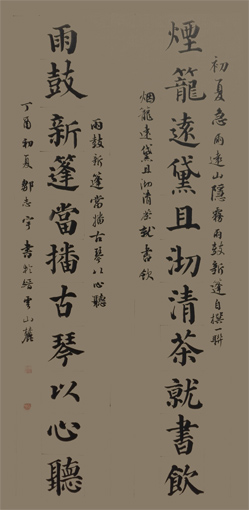 初夏急雨遠山隱霧雨鼓新篷自撰一聯
煙籠遠黛且沏清茶就書飲
烟籠遠黛且沏清茶就書飲
雨鼓新篷當播古琴以心聽
雨鼓新篷當播古琴以心聽
丁酉初夏鄒志宇書於縉雲山麓